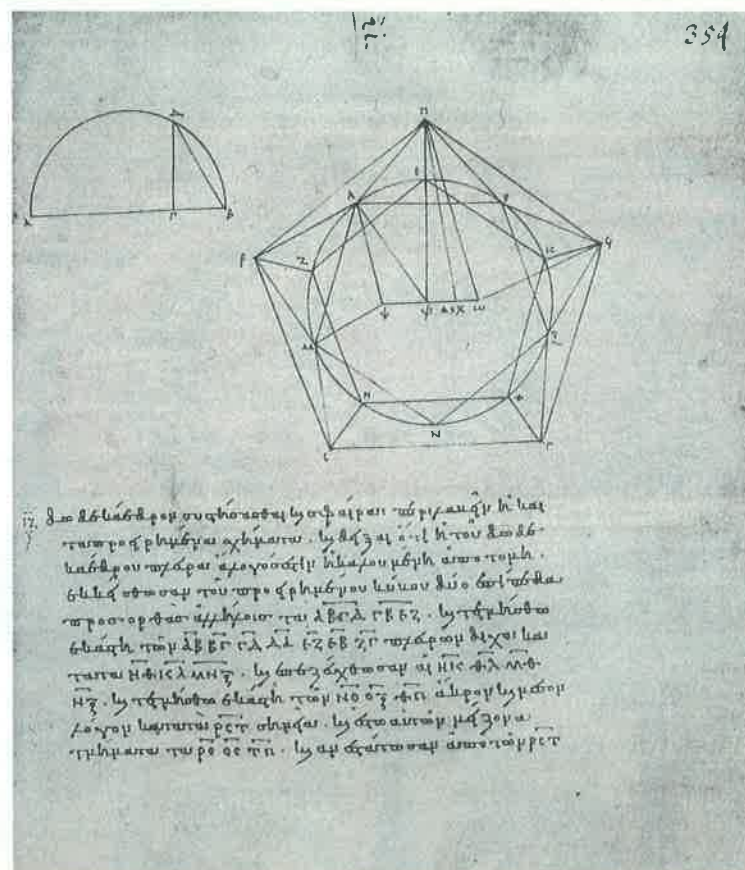 354
ιζ. δωδεκάεδρον συστήσασθαι καὶ σφαίραι περιλαβεῖν ἧι καὶ
τὰ προειρημένα σχήματα. καὶ δεῖξαι ὅτι ἡ τοῦ δωδε
καέδρου πλευρὰ ἄλογός ἐστιν ἡ καλουμένη ἀποτομή.
ἐκκείσθωσαν τοῦ προειρημένου κύβου δύο ἐπίπεδα
πρὸς ὀρθὰς ἀλλήλοις τὰ ΑΒΓΔ ΓΒΕΖ. καὶ τετμήσθω
ἑκάστη τῶν ΑΒ ΒΓ ΓΔ ΔΑ ΕΖ ΕΒ ΖΓ πλευρῶν δίχα κα
τὰ τὰ ΗΘΚΛΜΝΞ. καὶ ἐπεζεύχθωσαν αἱ ΗΚ ΘΛ ΜΘ
ΝΞ. καὶ τετμήσθω ἑκάστη τῶν ΝΟ ΟΞ ΘΠ ἄκρον καὶ μέσον
λόγον κατὰ τὰ ΡΣΤ σημεῖα. καὶ ἔστω αὐτῶν μείζονα
τμήματα τὰ ΡΟ ΟΣ ΤΠ. καὶ ἀνεστάτωσαν ἀπὸ τῶν ΡΣΤ